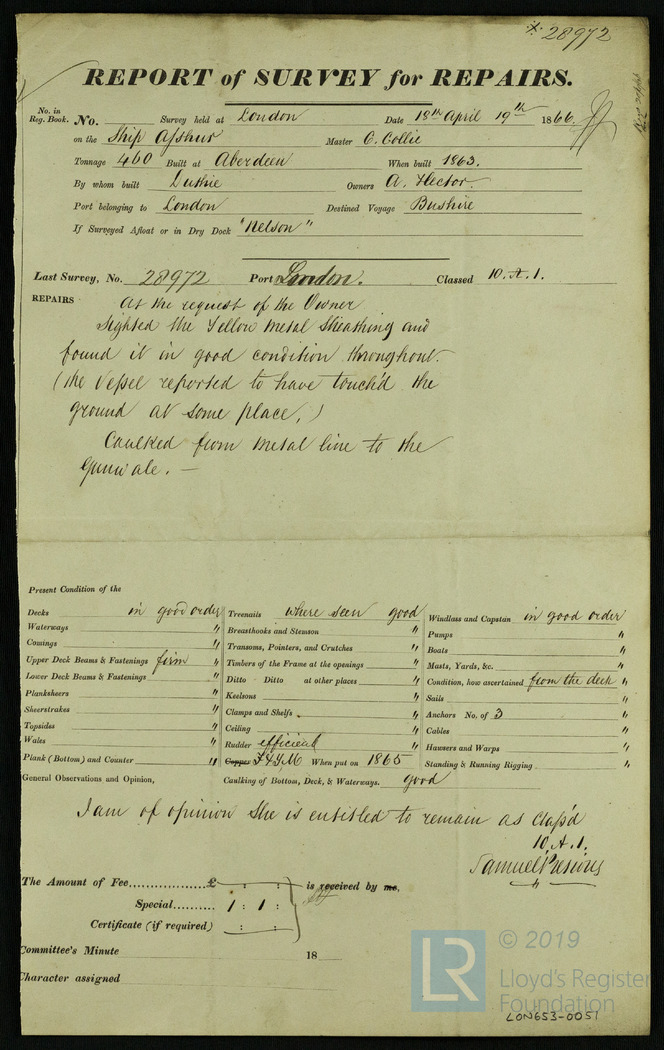 28972
REPORT of SURVEY for REPAIRS.
No. in Reg. Book. No. Survey held at London Date 18th April 19th 1866
on the Ship Asshur Master C. Collie
Tonnage 460 Built at Aberdeen When built 1863.
By whom built Duthie Owners A. Hector.
Port belonging to London Destined Voyage Bushire
If Surveyed Afloat or in Dry Dock "Nelson"
Last Survey, No. 28972 Port London. Classed 10. A. 1.
REPAIRS At the request of the Owner
sighted the Yellow Metal Sheathing and
found it in good condition throughout.
(the Vessel reported to have touch'd the
ground at some place,)
Caulked from metal line to the
Gunwale. —
Present Condition of the
Decks in good order
Waterways "
Comings "
Upper Deck Beams & Fastenings firm "
Lower Deck Beams & Fastenings "
Planksheers "
Sheerstrakes "
Topsides "
Wales "
Plank (Bottom) and Counter "
General Observations and Opinion,
Treenails where seen good
Breasthooks and Stemson "
Transoms, Pointers, and Crutches "
Timbers of the Frame at the openings "
Ditto Ditto at other places "
Keelsons "
Clamps and Shelfs "
Ceiling "
Rudder efficient "
Copper F & YM When put on 1865
Caulking of Bottom, Deck, & Waterways. good
Windlass and Capstan in good order
Pumps "
Boats "
Masts, Yards, &c. "
Condition, how ascertained from the deck "
Sails "
Anchors No. of 3 "
Cables "
Hawsers and Warps "
Standing & Running Rigging "
I am of opinion She is entitled to remain as Class'd
10. A. 1.
Samuel
The Amount of Fee............... £ : : is received by me,
Special.......... 1 : 1 :
Certificate (if required) : :
Committee's Minute 18
Character assigned
LR © 2019
Lloyd's Register
Foundation
LON653-0051